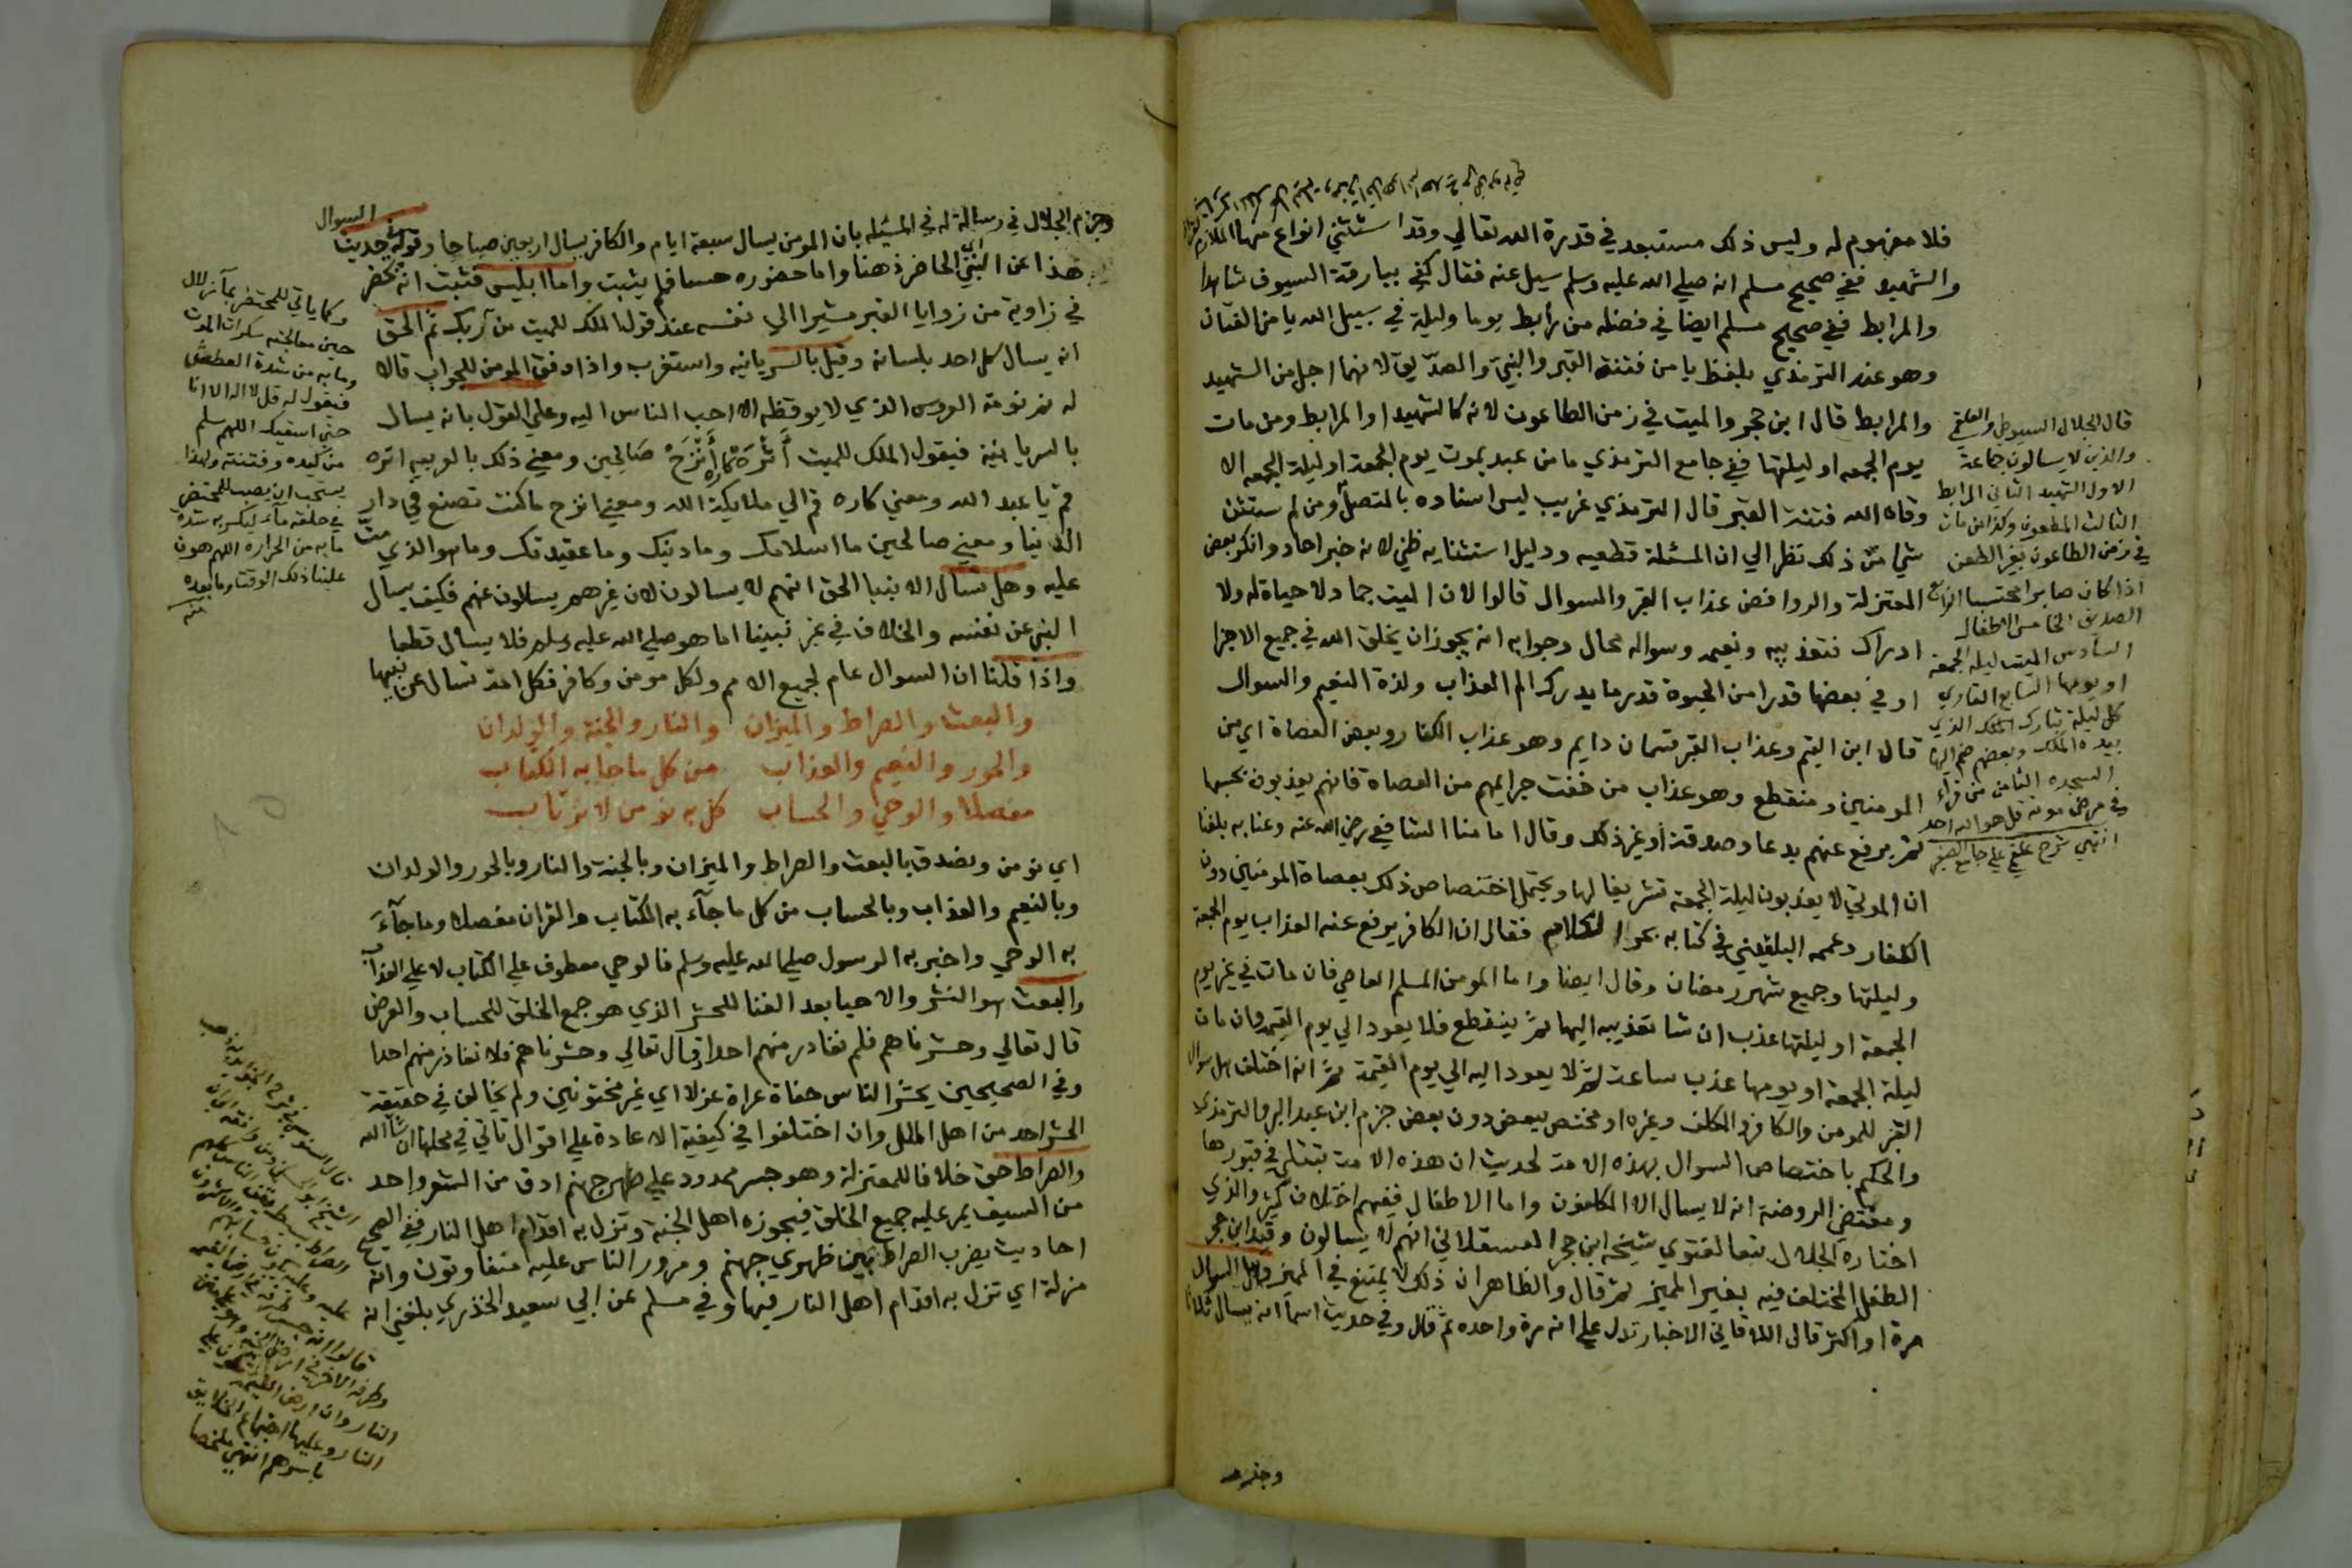 فلا مفهوم له وليس ذلك مستبعد في قدرة الله تعالي وقد استثني انواع منها
والشهيد ففي صحيح مسلم انه صلي الله عليه وسلم سيل عنه فقال كفي ببارقة السيوف شاهدا
والمرابط ففي صحيح مسلم ايضا في فضله من رابط يوما وليلة في سبيل الله يامن الفتان
وهو عند الترمذي بلفظ يامن فتنة القبر والنبي والصديق لانهما اجل من الشهيد
والمرابط قال ابن حجر والميت في زمن الطاعون لانه كالشهيد او المرابط ومن مات
يوم الجمعه او ليلتها ففي جامع الترمذي ما من عبد يموت يوم الجمعة او ليلة الجمعه الا
وقاه الله فتنة القبر قال الترمذي غريب ليس اسناده بالمتصل ومن لم يستثن
شي من ذلك نظر الي ان المسئلة قطعيه ودليل استثنايه ظني لانه خبر احاد وانكر بعض
المعتزلة والروافض عذاب القبر والسوال قالوا لان الميت جماد لا حياة له ولا
ادراك فتعذيبه ونعيمه وسواله محال وجوابه انه يجوز ان يخلق الله في جميع الاجزا
او في بعضها قدرا من الحيوة قدر ما يدرك الم العذاب ولذة النعيم والسوال
قال ابن القيم وعذاب القبر قسمان دايم وهو عذاب الكفار وبعض العصاة اي من
المومنين ومنقطع وهو عذاب من خفت جرايمهم من العصاة فانهم يعذبون بحسبها
ثم يرفع عنهم بدعا وصدقة او غير ذلك وقال امامنا الشافعي رضي الله عنه وعنا به بلغنا
ان الموتي لا يعذبون ليلة الجمعة تشريفا لها ويحتمل اختصاص ذلك بعصاة المومنين دون
الكفار وعممه البلقيني في كتابه بحر الكلام فقال ان الكافر يرفع عنه العذاب يوم الجمعة
وليلتها وجميع شهر رمضان وقال ايضا واما المومن المسلم العاصي فان مات في غير يوم
الجمعة او ليلتها عذب ان شا تعذيبه اليها ثم ينقطع فلا يعود الي يوم القيمة وان مات
ليلة الجمعة او يومها عذب ساعة ثم لا يعود اليه الي يوم القيمة ثم انه اختلف هل سوال
القبر للمومن والكافر المكلف وغيره او مختص ببعض دون بعض جزم ابن عبد البر والترمذي
والحكيم باختصاص السوال بهذه الامة لحديث ان هذه الامة تبتلي في قبورها
ومقتضي الروضة انه لا يسال الا المكلفون واما الاطفال ففيهم اختلاف كثير والذي
اختاره الجلال تبعا لفتوي شيخه ابن حجر العسقلاني انهم لا يسالون وقيد ابن حجر
الطفل المختلف فيه بغير المميز ثم قال والظاهر ان ذلك لا يمتنع في المميز وهل السوال
مرة او اكثر قال اللاقاني الاخبار تدل علي انه مرة واحده ثم قال وفي حديث اسما انه يسال ثلاثا
قال الجلال السيوطي والعلقمي
والذين لا يسالون جماعة
الاول الشهيد الثاني المرابط
الثالث المطعون وكذا من مات
في زمن الطاعون بغير الطعن
اذا كان صابرا محتسبا الرابع
الصديق الخامس الاطفال
السادس الميت ليلة الجمعة
او يومها السابع القاري
كل ليلة تبارك الملك الذي
بيده الملك وبعضهم ضم اليها
السجده الثامن من قراء
في مرض موته قل هو الله احد
انتهي شرح علي جامع الصغير
وجزم
السوال
وجزم الجلال في رسالة له في المسئله بان المومن يسال سبعة ايام والكافر يسال اربعين صباحا وقوله في حديث
هذا عن النبي اي الحاضر ذهنا واما حضوره حسا فلم يثبت واما ابليس فثبت انه يحضر
في زاوية من زوايا القبر مشيرا الي نفسه عند قول الملك للميت من ربك ثم الحق
انه يسال كل احد بلسانه وقيل بالسريانيه واستغرب واذا وفق المومن للجواب قالا
له نم نومة العروس الذي لا يوقظه الا احب الناس اليه وعلي القول بانه يسال
بالسريانية فيقول الملك للميت أَتْرَهْ كاره أَتْزَحْ صَالحِين ومعني ذلك بالعربيه اتره
قم يا عبد الله ومعني كاره قم الي ملايكة الله ومعني اتزح ما كنت تصنع في دار
الدنيا ومعني صالحين ما اسلامك وما دينك وما عقيدتك وما هو الذي مت
عليه وهل تسال الانبيا الحق انهم لا يسالون لان غيرهم يسالون عنهم فكيف يسال
النبي عن نفسه والخلاف في غير نبينا اما هو صلي الله عليه وسلم فلا يسال قطعا
واذا قلنا ان السوال عام لجميع الامم ولكل مومن وكافر فكل امة تسال عن نبيها
والبعث والصراط والميزان والنار والجنة والولدان
والحور والنعيم والعذاب من كل ما جا به الكتاب
مفصلا والوحي والحساب كل به نومن لا نرتاب
اي نومن ونصدق بالبعث والصراط والميزان وبالجنة والنار وبالحور والولدان
وبالنعيم والعذاب وبالحساب من كل ما جآء به الكتاب والقران مفصلا وما جآءَ
به الوحي واخبر به الرسول صلي الله عليه وسلم فالوحي معطوف علي الكتاب لا علي العذاب
والبعث هو النشر والاحيا بعد الفنا للحشر الذي هو جمع الخلق للحساب والعرض
قال تعالي وحشرناهم فلم نغادر منهم احدا وقال تعالي وحشرناهم فلا نغادر منهم احدا
وفي الصحيحين يحشر الناس حفاة عراة غرلا اي غير مختونين ولم يخالف في حقيقة
الحشر احد من اهل الملل وان اختلفوا في كيفية الاعادة علي اقوال تاتي في محلها ان شا الله
والصراط حق خلافا للمعتزلة وهو جسر ممدود علي ظهر جهنم ادق من الشعر واحد
من السيف يمر عليه جميع الخلق فيجوزه اهل الجنة وتزل به اقدام اهل النار ففي الصحيح
احاديث يضرب الصراط بين ظهري جهنم ومرور الناس عليه متفاوتون وانه
مزلة اي تزل به اقدام اهل النار فيها وفي مسلم عن ابي سعيد الخذري بلغني انه
وكما ياتي للمحتضر بمآء زلال
حين معالجته سكرات الموت
وما به من شدة العطش
فيقول له قل لا اله الا انا
حتي اسقيك اللهم سلم
من كيده وفتنته ولهذا
يستحب ان يصب للمحتضر
في حلقه مآء ليكسر به شدة
ما به من الحراره اللهم هون
علينا ذلك الوقت وما بعده
منه
قالوا انه جسر
النار وان ارض القيمه
النار وعليها اجتماع الخلايق
باسرهم انتهي ملخصا